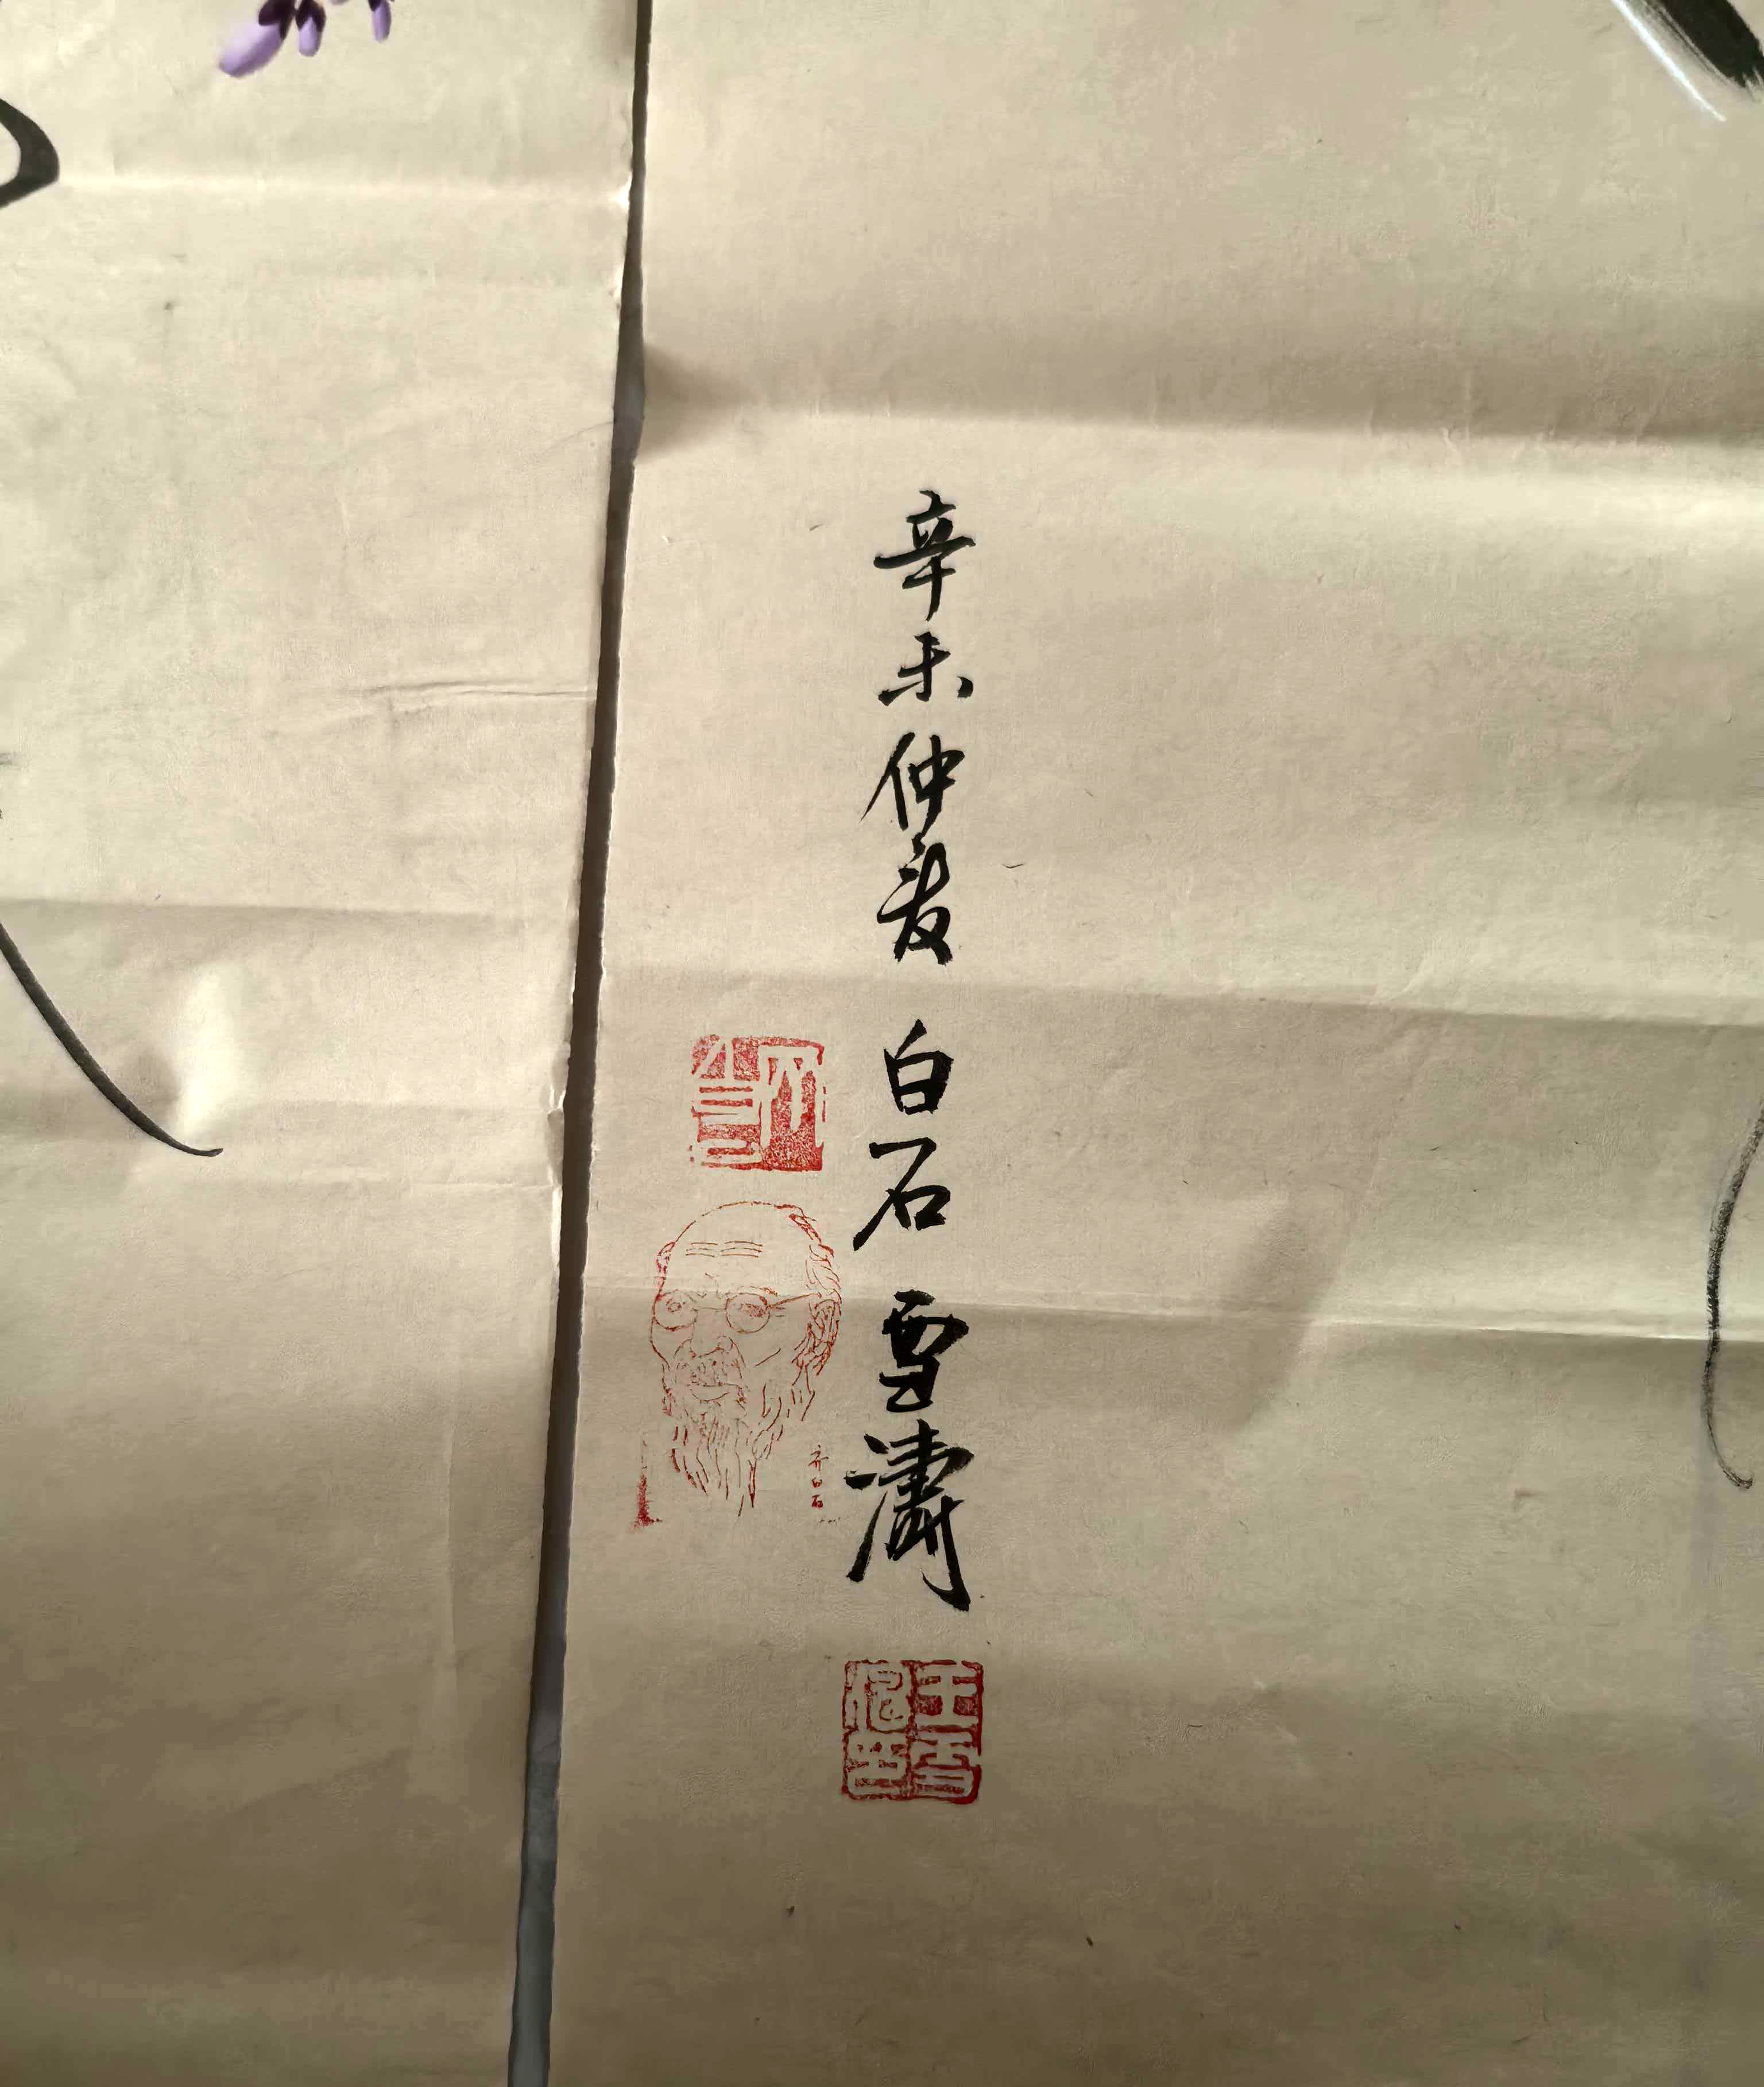 辛未仲夏 白石 雪濤
齐白石
王雪